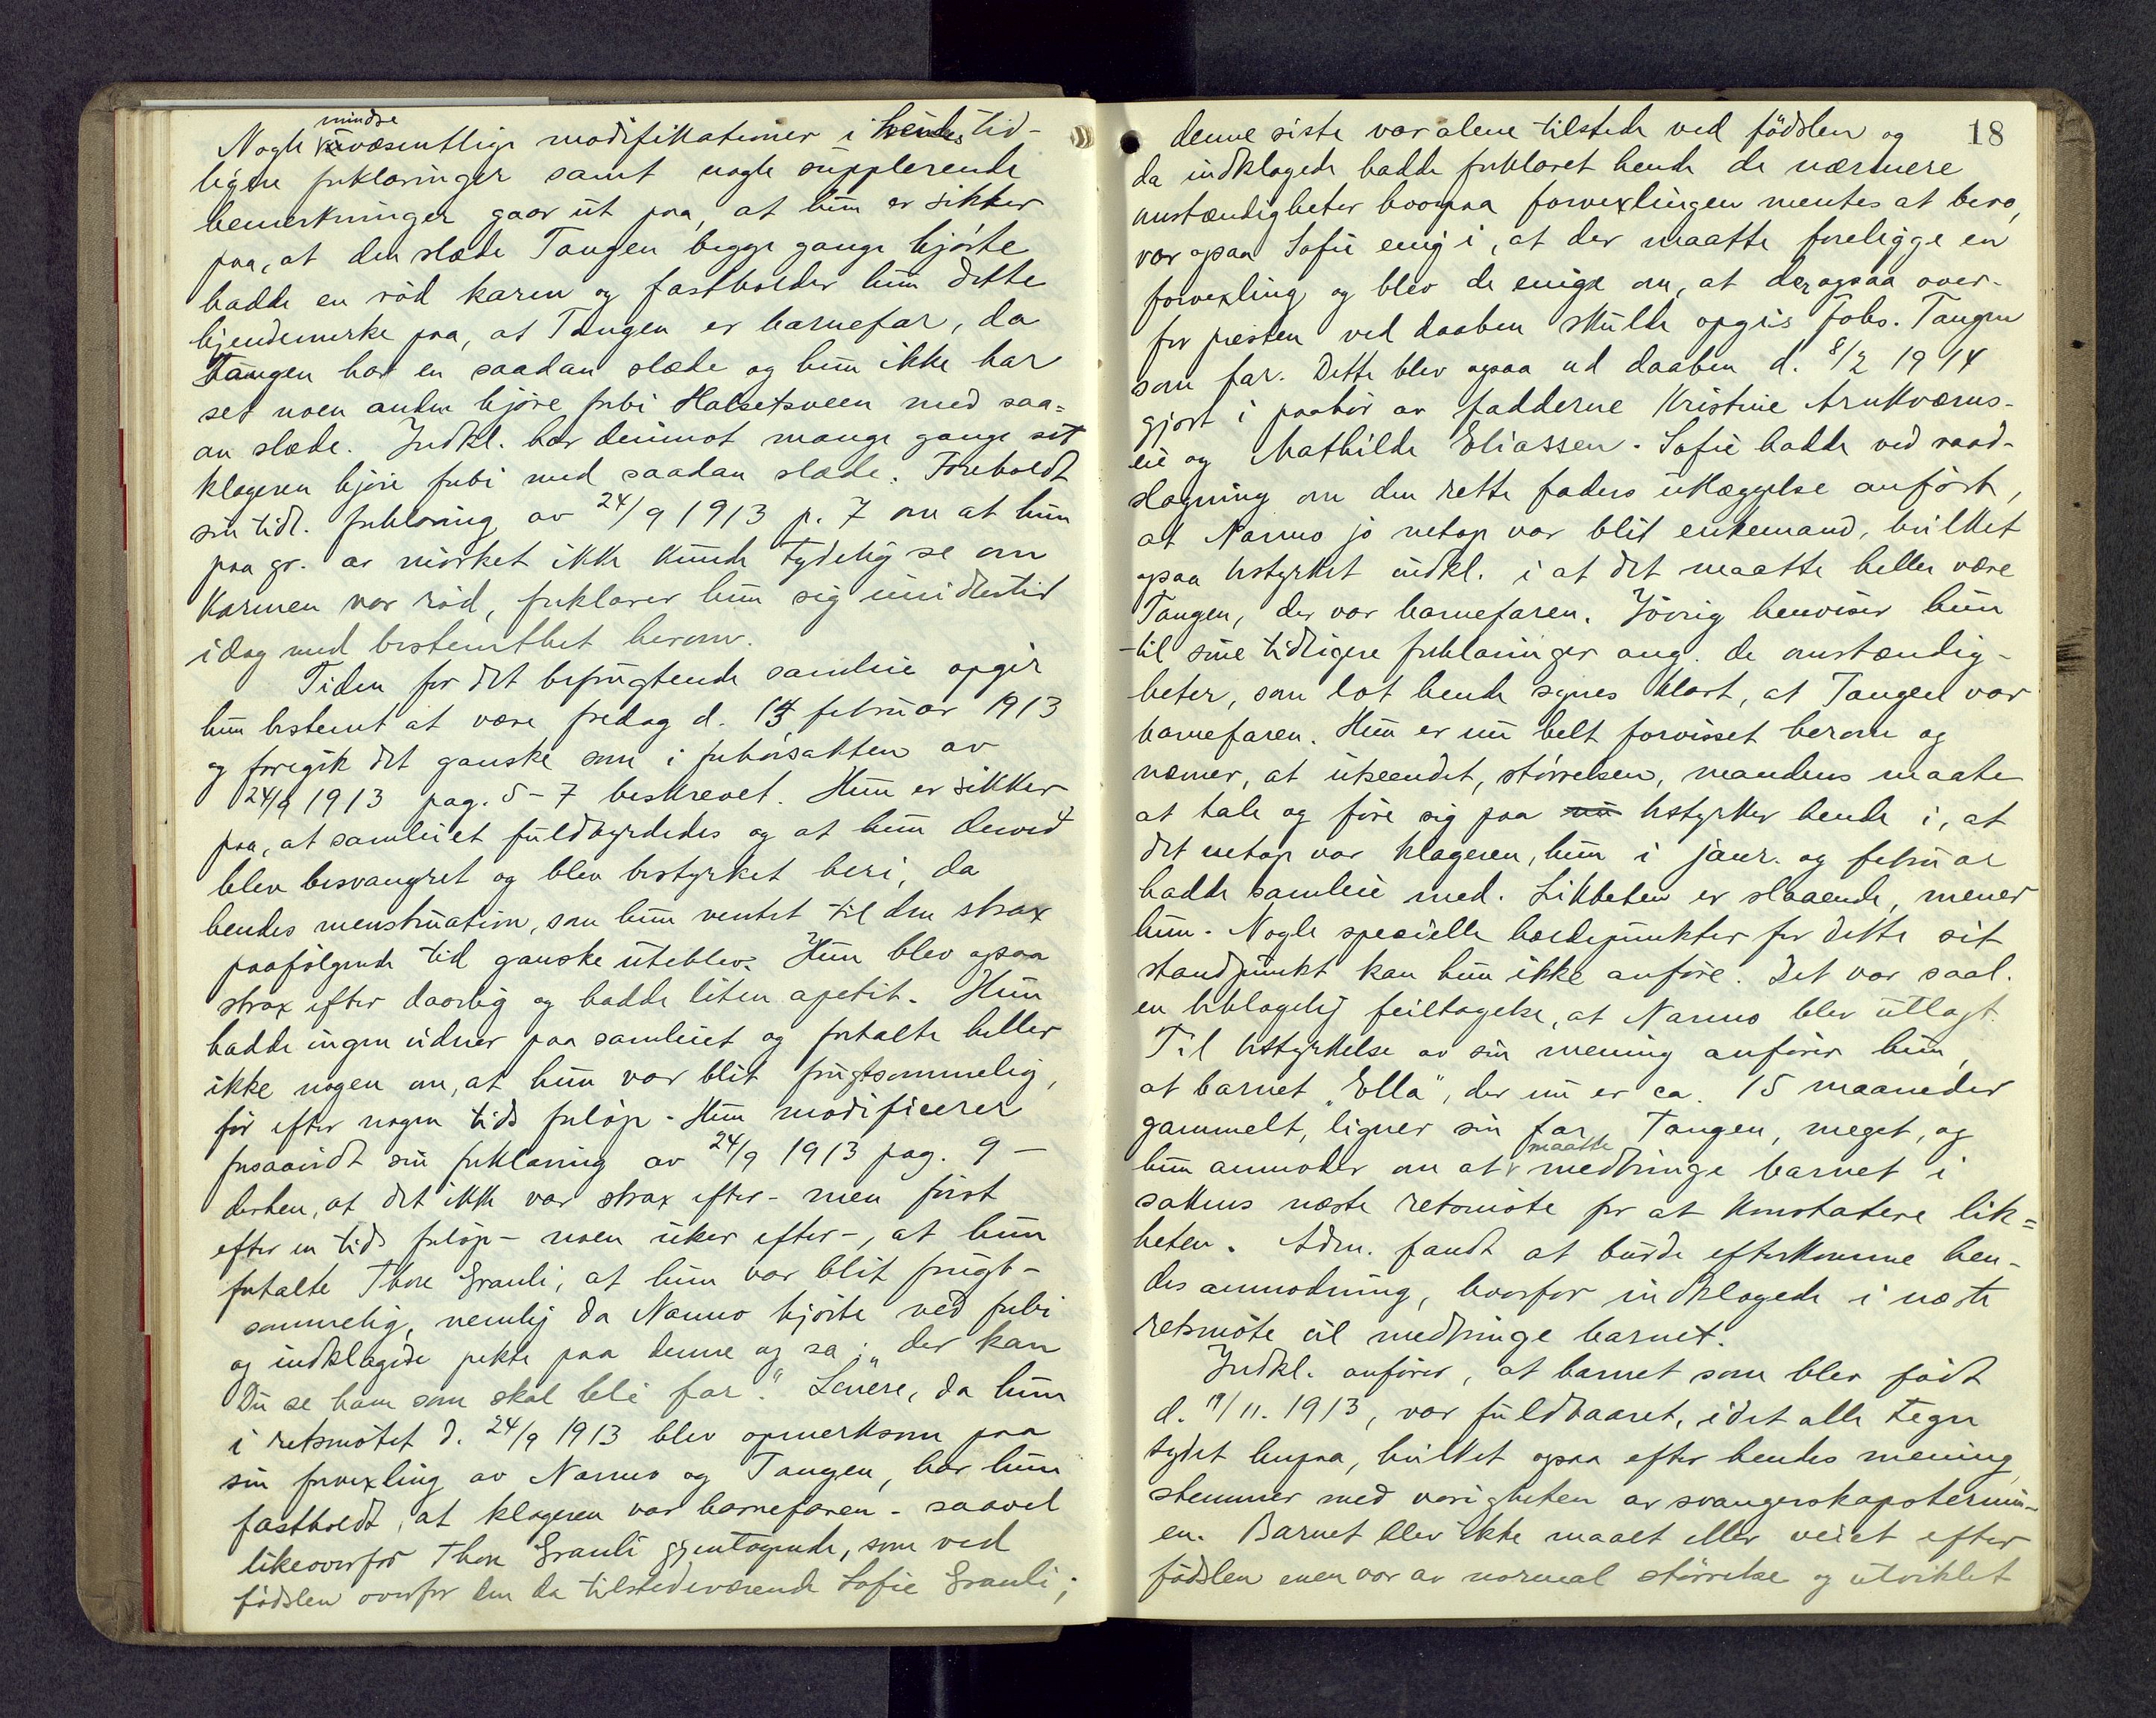 Nogle mindre væsentlige modifikationer i hendes tid-
ligere forklaringer samt nogle supplerende
bemerkninger gaar ut paa, at hun er sikker
paa, at den slæde Tangen begge gange kjørte
hadde en rød karm og fastholder hun dette
kjendemerke paa, at Tangen er barnefar, da
Tangen har en saadan slæde og hun ikke har
set noen anden kjøre forbi Halsetsveen med saa=
an slæde. Indkl. har derimot mange gange set
klageren kjøre forbi med saadan slæde. Foreholdt
sin tidl. forklaring av 24/9 1913 p. 7 om at hun
paa gr. av mørket ikke kunde tydelig se om
karmen var rød, forklarer hun sig imidlertid
idag med bestemthet herom.
Tiden for det befrugtende samleie opgir
hun bestemt at være fredag d. 14 februar 1913
og foregik det ganske som i forhørsakten av
24/9 1913 pag. 5-7 beskrevet. Hun er sikker
paa, at samleiet fuldbyrdedes og at hun derved
blev besvangret og blev bestyrket heri, da
hendes menstruation, som hun ventet til den strax
paafølgende tid ganske uteblev. Hun blev ogsaa
strax efter daarlig og hadde liten apetit. Hun
hadde ingen vidner paa samleiet og fortalte heller
ikke nogen om, at hun var blit frugtsommelig,
før efter nogen tids forløp. Hun modificerer
forsaavidt sin forklaring av 24/9 1913 pag. 9 -
derhen, at det ikke var strax efter - men først
efter en tids forløp - noen uker efter -, at hun
fortalte Thore Grauli, at hun var blit frugt-
sommelig, nemlig da Narmo kjørte ved forbi
og indklagede pekte paa denne og sa: "der kan
Du se ham som skal bli far." Senere, da hun
i retsmøtet d. 24/9 1913 blev opmerksom paa
sin forvexling av Narmo og Tangen, har hun
fastholdt, at klageren var barnefaren - saavel
likeoverfor Thore Grauli gjentagende, som ved
fødslen overfor den da tilstedeværende Sofie Grauli;
18
denne siste var alene tilstede ved fødslen og
da indklagede hadde forklaret hende de nærmere
omstændigheter hvorpaa forvexlingen mentes at bero,
var ogsaa Sofie enig i, at der maatte foreligge en
forvexling og blev de enige om, at der ogsaa over-
for presten ved daaben skulde opgis Johs. Tangen
som far. Dette blev ogsaa ved daaben d. 8/2 1914
gjort i paahør av fadderne Kristine Arnkværns-
eie og Mathilde Eliassen. Sofie hadde ved raad-
slagning om den rette faders utlæggelse anført,
at Narmo jo netop var blit enkemand, hvilket
ogsaa bestyrket indkl. i at det maatte heller være
Tangen, der var barnefaren. Iøvrig henviser hun
til sine tidligere forklaringer ang. de omstændig-
heter, som lot hende synes klart, at Tangen var
barnefaren. Hun er nu helt forvisset herom og
nævner, at utseendet, størrelsen, mandens maate
at tale og føre sig paa bestyrker hende i, at
det netop var klageren, hun i janr. og februar
hadde samleie med. Likheten er slaaende, mener
hun. Nogle specielle holdepunkter for dette sit
standpunkt kan hun ikke anføre. Det var saal.
en beklagelig feiltagelse, at Narmo blev utlagt.
Til bestyrkelse av sin mening anfører hun,
at barnet "Ella", der nu er ca. 15 maaneder
gammelt, ligner sin far, Tangen, meget, og
hun anmoder om at maatte medbringe barnet i
sakens næste retsmøte for at konstatere lik=
heten. Adm. fandt at burde efterkomme hen-
des anmodning, hvorfor indklagede i næste
retsmøte vil medbringe barnet.
Indkl. anfører, at barnet som blev født
d. 19/11. 1913, var fuldbaaret, idet alle tegn
tydet herpaa, hvilket ogsaa efter hendes mening
stemmer med varigheten av svangerskapstermin-
en. Barnet blev ikke maalt eller veiet efter
fødslen men var av normal størrelse og utviklet